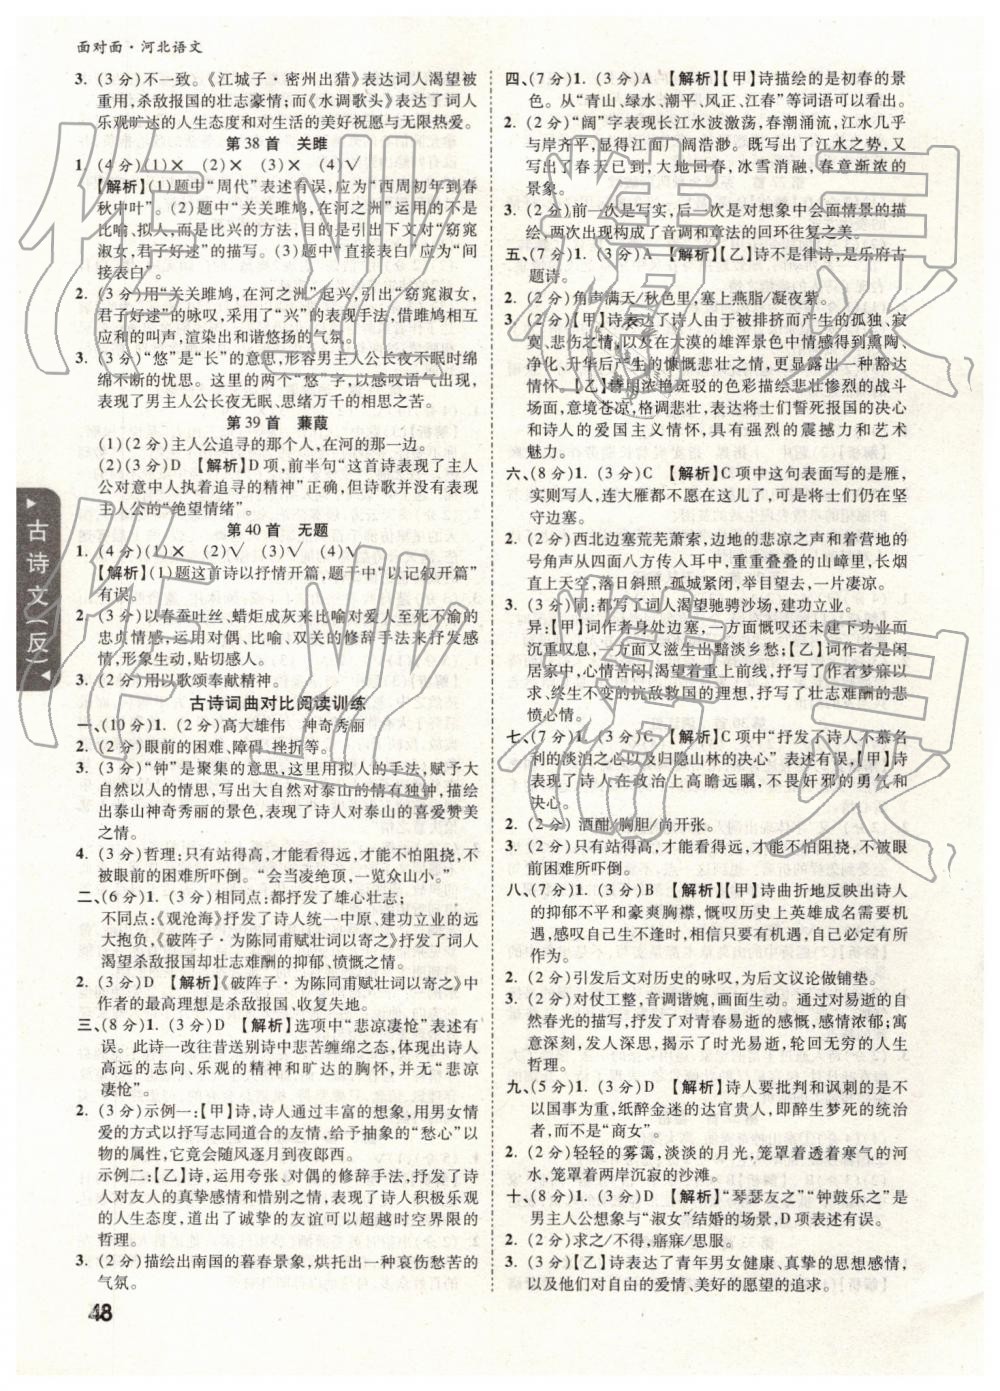 面对面·河北语文
3. (3分)不一致。《江城子·密州出猎》表达词人渴望被
重用,杀敌报国的壮志豪情;而《水调歌头》表达了词人
乐观旷达的人生态度和对生活的美好祝愿与无限热爱。
第38首　关雎
1. (4分)(1)× (2)× (3)× (4)√
【解析】(1)题中“周代”表述有误,应为“西周初年到春
秋中叶”。(2)题中“关关雎鸠,在河之洲”运用的不是
比喻,而是比兴的方法,目的是引出下文对“窈窕
淑女,君子好逑”的描写。(3)题中“直接表白”应为“间
接表白”。
2. (3分)用“关关雎鸠,在河之洲”起兴,引出“窈窕淑女,
君子好逑”的咏叹,运用了“兴”的表现手法,借雎鸠相
应和的叫声,渲染出和谐悠扬的气氛。
3. (3分)“悠”是“长”的意思,形容男主人公长夜不眠时绵
绵不断的忧思。这里的两个“悠”字,以感叹语气出现,
表现了男主人公长夜无眠、思绪万千的相思之苦。
第39首　蒹葭
(1)(2分)主人公追寻的那个人,在河的那一边。
(2)(3分)D 【解析】D项,前半句“这首诗表现了主人
公对意中人执着追寻的精神”正确,但诗歌并没有表现
主人公的“绝望情绪”。
第40首　无题
1. (4分)(1)× (2)√ (3)√ (4)√
【解析】(1)题这首诗以抒情开篇,题干中“以记叙开篇”
有误。
2. (3分)以春蚕吐丝、蜡炬成灰来比喻对爱人至死不渝的
忠贞情感,运用对偶、比喻、双关的修辞手法来抒发感
情,形象生动,贴切感人。
3. (2分)用以歌颂奉献精神。
古诗词曲对比阅读训练
一、(10分)1. (2分)高大雄伟　神奇秀丽
2. (2分)眼前的困难、障碍、挫折等。
3. (3分)“钟”是聚集的意思,这里用拟人的手法,赋予大
自然以人的情思,写出大自然对泰山的情有独钟,描绘
出泰山神奇秀丽的景色,表现了诗人对泰山的喜爱赞美
之情。
4. (3分)哲理:只有站得高,才能看得远,才能不怕阻挠,不
被眼前的困难所吓倒。“会当凌绝顶,一览众山小。”
二、(6分)1. (3分)相同点:都抒发了雄心壮志;
不同点:《观沧海》抒发了诗人统一中原、建功立业的远
大抱负,《破阵子·为陈同甫赋壮词以寄之》抒发了词人
渴望杀敌报国却壮志难酬的抑郁、愤慨之情。
2. (3分)D 【解析】《破阵子·为陈同甫赋壮词以寄之》中
作者的最高理想是杀敌报国,收复失地。
三、(8分)1. (3分)D 【解析】选项中“悲凉凄怆”表述有
误。此诗一改往昔送别诗中悲苦缠绵之态,体现出诗人
高远的志向、乐观的精神和旷达的胸怀,并无“悲凉
凄怆”。
2. (3分)示例一:【甲】诗,诗人通过丰富的想象,用男女情
爱的方式以抒写志同道合的友情,给予抽象的“愁心”以
物的属性,它竟会随风逐月到夜郎西。
示例二:【乙】诗,运用夸张、对偶的修辞手法,抒发了诗
人对友人的真挚感情和惜别情谊,表现了诗人积极乐观
的人生态度,道出了诚挚的友谊可以超越时空界限的
哲理。
3. (2分)描绘出南国的暮春景象,烘托出一种哀伤愁苦的
气氛。
四、(7分)1. (3分)A 【解析】【甲】诗描绘的是初春的景
色。从“青山、绿水、潮平、风正、江春”等词语可以看出。
2. (2分)“阔”字表现长江水波激荡,春潮涌流,江水几乎
与岸齐平,显得江面广阔浩渺。既写出了江水之势,又
写出了春天已到,大地回春,冰雪消融,春意渐浓的
景象。
3. (2分)前一次是写实,后一次是对想象中会面情景的描
绘,两次出现构成了音调和章法的回环往复之美。
五、(7分)1. (3分)A 【解析】【乙】诗不是律诗,是乐府古
题诗。
2. (2分)角声满天/秋色里,塞上燕脂/凝夜紫。
3. (2分)【甲】诗表达了诗人由于被排挤而产生的孤独、寂
寞、悲伤之情,以及在大漠的雄浑景色中情感得到熏陶、
净化、升华后产生的慷慨悲壮之情,更显露出一种豁达
情怀。【乙】诗用浓艳斑驳的色彩描绘悲壮惨烈的战斗
场面,意境苍凉,格调悲壮,表达将士们誓死报国的决心
和诗人的爱国主义情怀,具有强烈的震撼力和艺术
魅力。
六、(8分)1. (3分)C 【解析】C项中这句表面写的是雁,
实则写人,连大雁都不愿飞回,但是将士们仍然在坚
守边塞。
2. (2分)西北边塞荒芜萧索,边地的悲凉之声和着营地的
号角声从四面八方传人耳中,重重叠叠的山嶂里,长烟
直上云天,落日斜照,孤城紧闭,举目望去,一片凄凉。
3. (3分)同:都写了词人渴望驰骋沙场,建功立业。
异:【甲】词作者身处边塞,一方面慨叹还未建下功业而
沉重叹息,一方面又滋生出边愁乡思之情。【乙】词是闲
居家中,心怀苦闷,渴望着重上前线,抒写了作者梦寐以
求、恢复祖国山河的壮志和被削职闲居、壮志难酬的悲
愤心情。
七、(7分)1. (3分)C 【解析】C项中“抒发了诗人不慕名
利的淡泊之心以及归隐山林的决心”表述有误,【甲】诗
表现了诗人在政治上高瞻远瞩,不畏奸邪的勇气和
决心。
2. (2分)酒酣/胸胆/尚开张。
3. (2分)只有站得高,才能看得远,才能不怕阻挠,不被眼
前的困难所吓倒。
八、(7分)1. (3分)B 【解析】【甲】诗曲折地反映出诗人
的抑郁不平和豪爽胸襟,慨叹历史上英雄成名需要机
遇,感叹自己生不逢时,相信只要有机遇,自己必定有所
作为。
2. (2分)引发后文对历史的咏叹,为后文议论做铺垫。
3. (2分)对仗工整,音调谐婉,画面生动。通过对易逝的自
然春光的描写,抒发了对青春易逝的感慨,情感浓郁;寓
意深刻,发人深思,揭示了时光易逝、往日无穷的人生
哲理。
九、(5分)1. (3分)D 【解析】诗人要批判和讽刺的是不
以国家兴亡为重,纸醉金迷的达官贵人,即醉生梦死的统治
者,而不是“商女”。
2. (2分)轻轻的雾霭,淡淡的月光,笼罩着透着寒气的河
水,笼罩着两岸沉寂的沙滩。
十、(8分)1. (3分)D 【解析】“琴瑟友之”“钟鼓乐之”是
男主人公想象与“淑女”结婚的场景,D项表述有误。
2. (2分)求之/不得,寤寐/思服。
3. (3分)表达了青年男女健康、真挚的思想感情,
以及他们对自由的爱情、美好的愿望的追求。
古诗文(反)
48
作业精灵
作业精灵